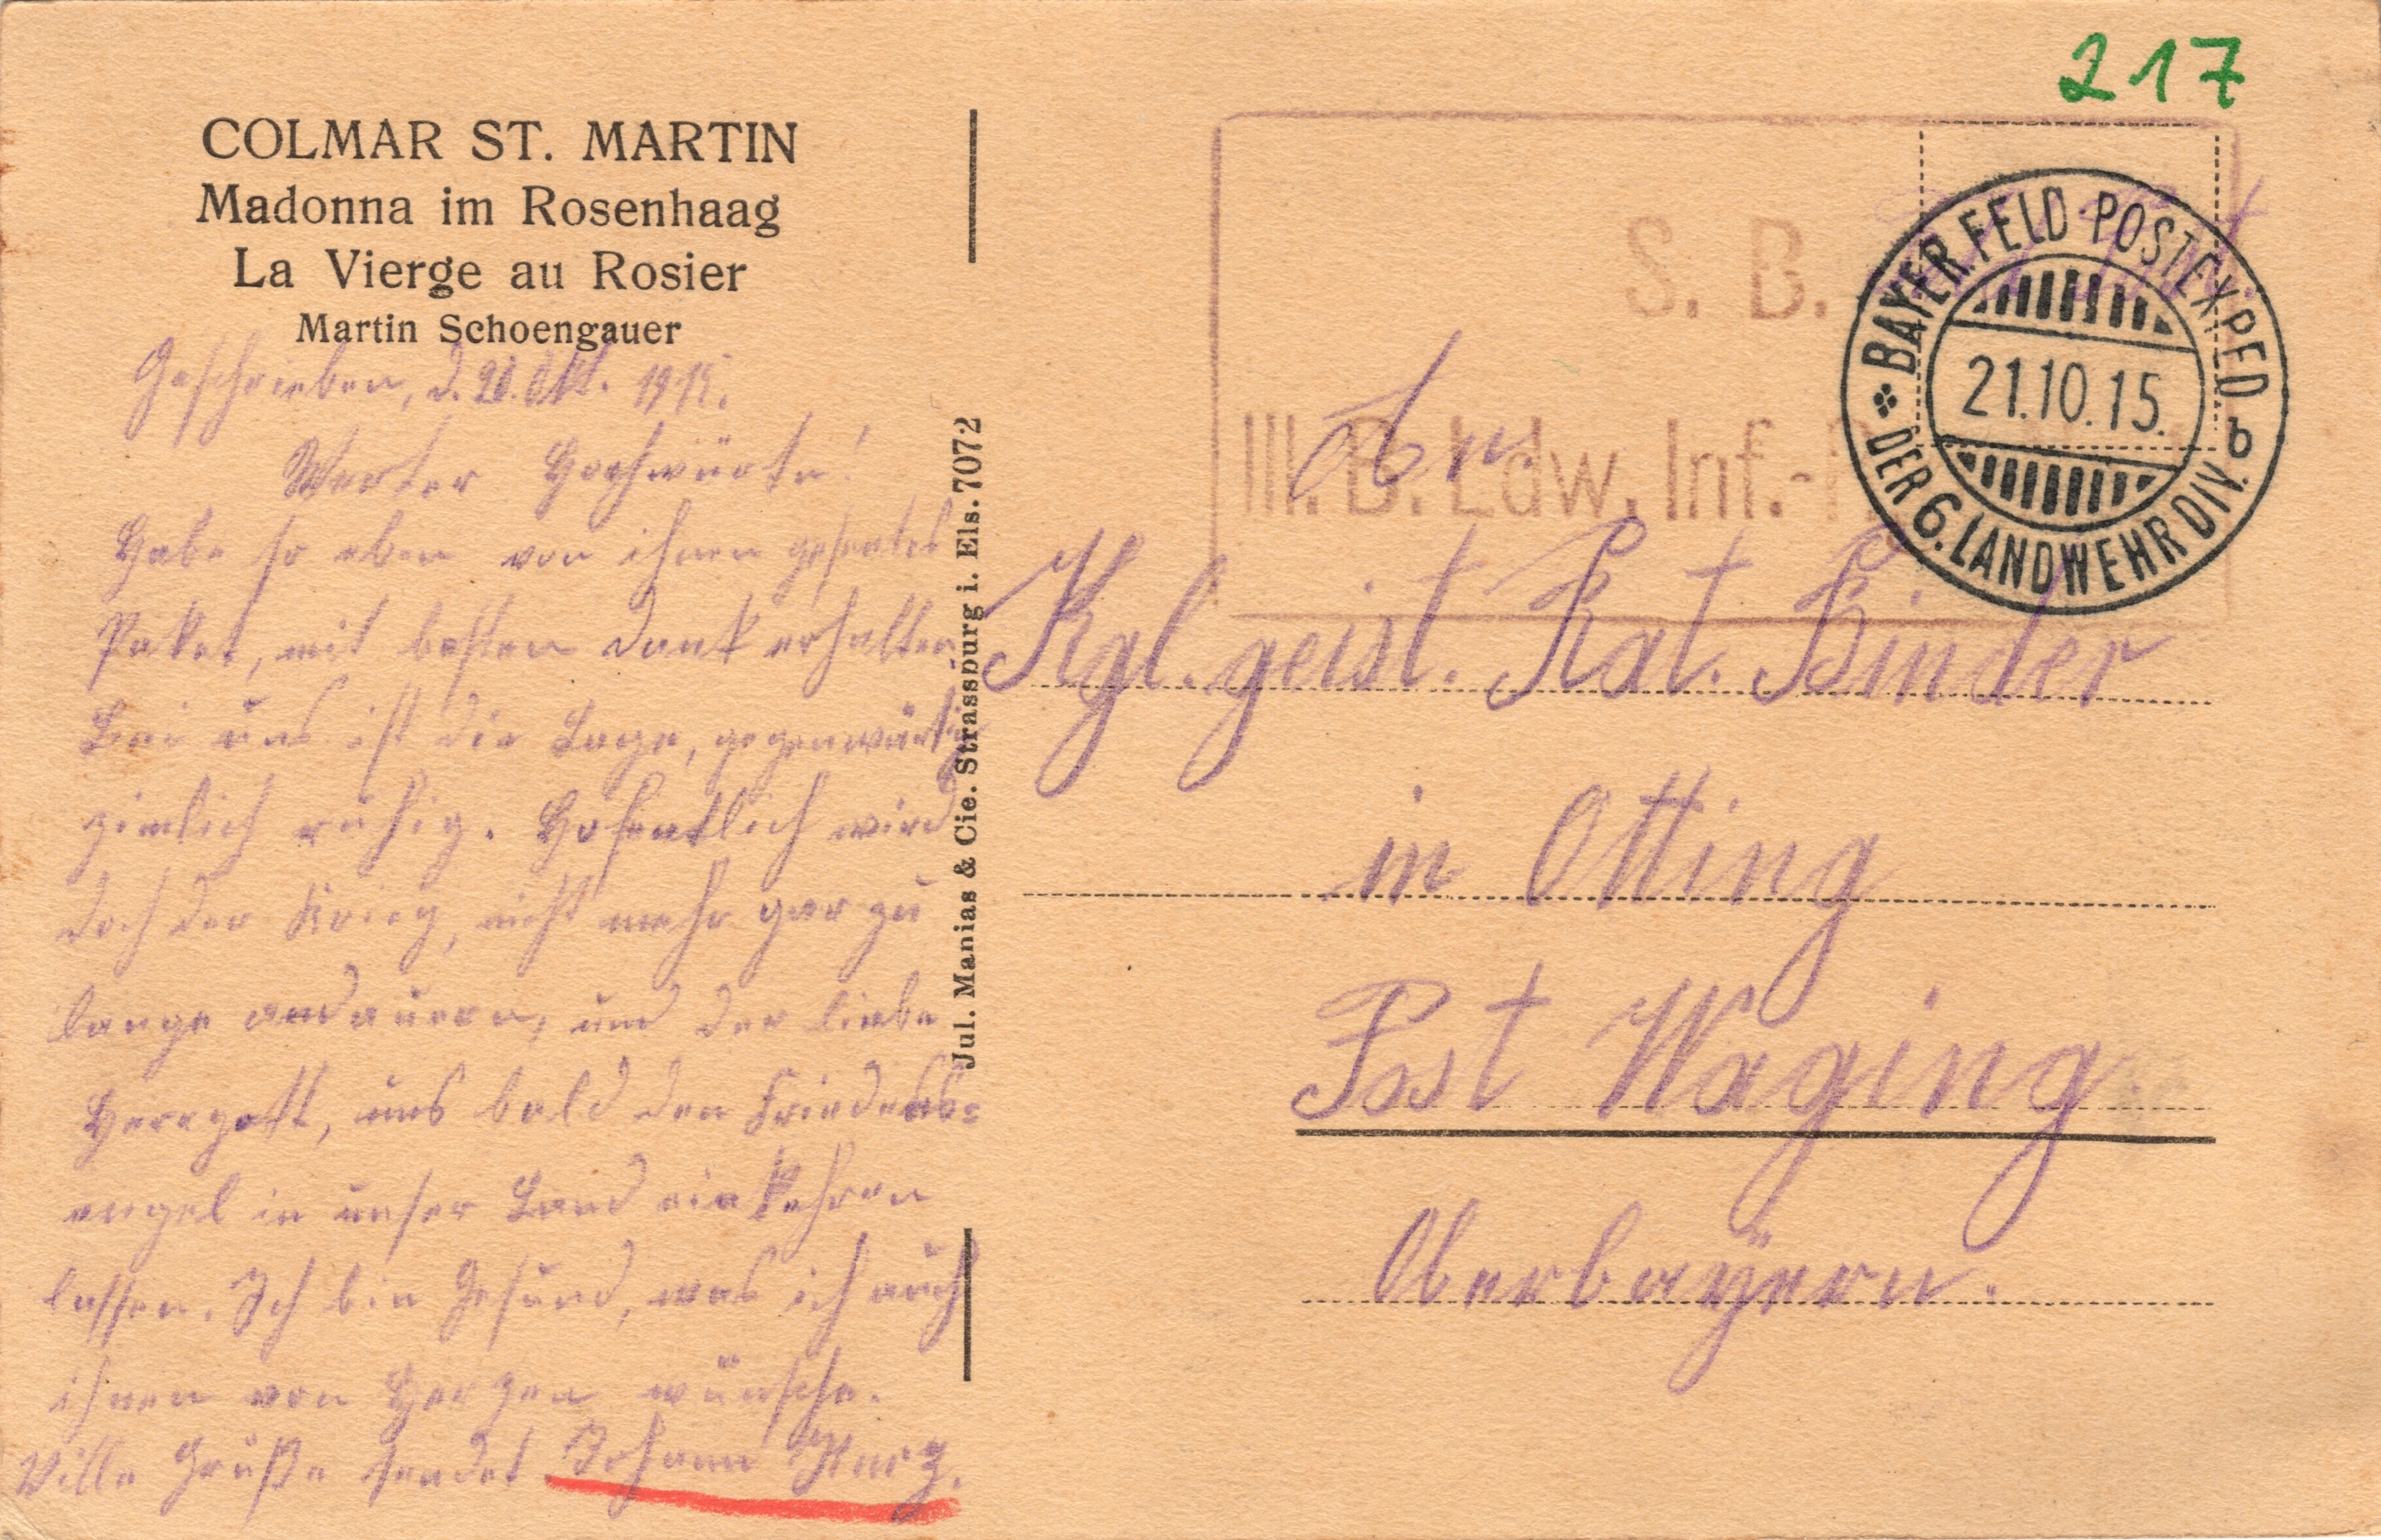 217
COLMAR ST. MARTIN
Madonna im Rosenhaag
La Vierge au Rosier
Martin Schoengauer
Geschrieben, d. 20. Okt. 1915.
Werter Hochwürden!
Habe so eben von ihnen gesentes
Paket, mit besten Dank erhalten
Bei uns ist die Lage, gegenwärtig
zimlich ruhig. Hofentlich wird
doch der Krieg, nicht mehr gar zu
lange andauern, und der liebe
Herrgott, uns bald den Friedens=
engel in unser Land einkehren
lassen. Ich bin Gesund, was ich auch
ihnen von Herzen wünsche.
Ville Grüße sendet Johann
Jul. Manias & Cie. Strasspurg i. Els. 7072
S. B.
III. B. Ldw. Inf.-
BAYER. FELD-POSTEXPED
21.10.15.
b
DER 6. LANDWEHR DIV.
An
Kgl. geist. Rat. Binder
in Otting
Post Waging
Oberbayern.